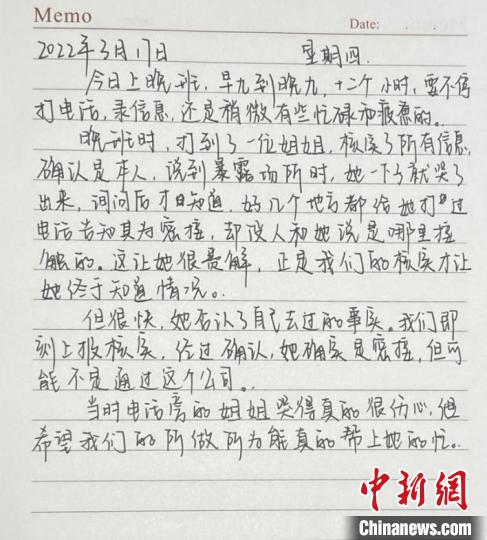 Memo
Date:
2022年3月17日 星期四.
今日上晚班,早九到晚九,十二个小时,要不停
打电话,录信息,还是稍微有些忙碌和疲惫的。
晚班时,打到了一位姐姐,核实了所有信息,
确认是本人,说到暴露场所时,她一下子就哭了
出来,询问后才知道,好几个地方都给她打过
电话告知其为密接,却没人和她说是哪里接
触的。这让她很费解,正是我们的核实才让
她终于知道情况。
但很快,她否认了自己去过的事实。我们即
刻上报核实,经过确认,她确实是密接,但可
能不是通过这个公司。
当时电话旁的姐姐哭得真的很伤心,但
希望我们的所做所为能真的帮上她的忙。
中新网
Chinanews.com